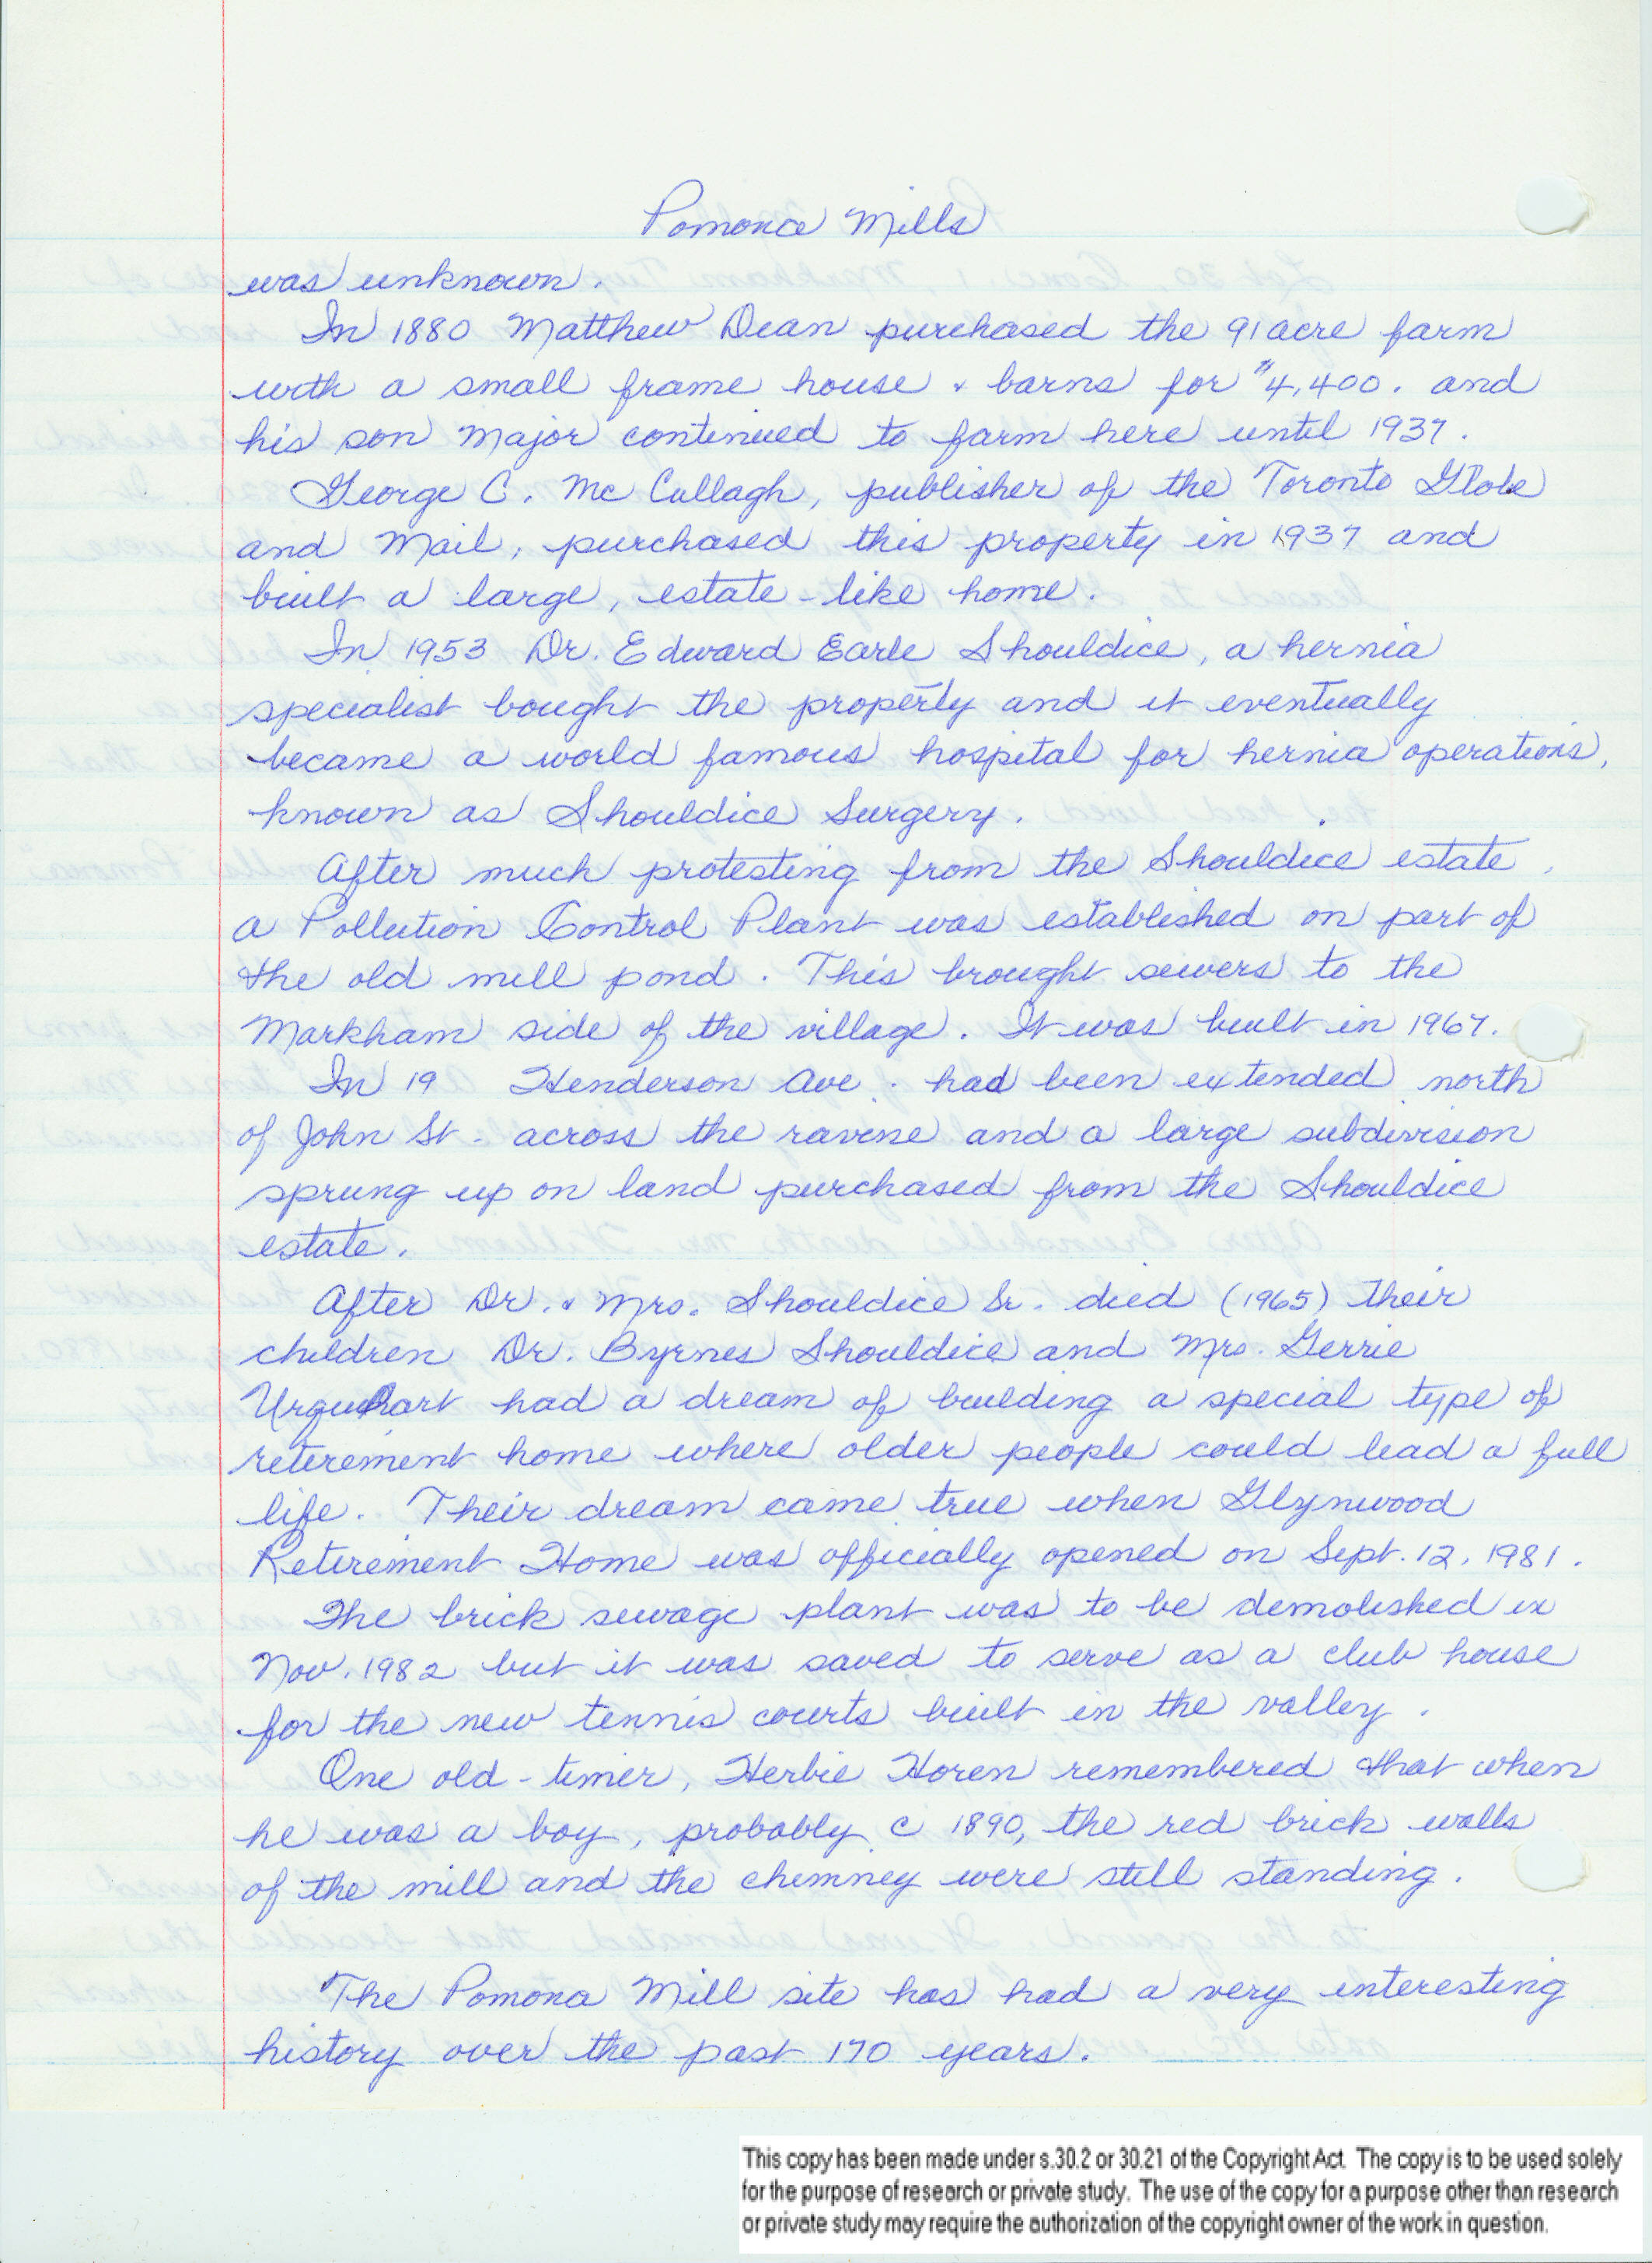 Pomona Mills
was unknown.
In 1880 Matthew Dean purchased the 91 acre farm
with a small frame house & barns for $4,400. and
his son Major continued to farm here until 1937.
George C. Mc Cullagh, publisher of the Toronto Globe
and Mail, purchased this property in 1937 and
built a large, estate-like home.
In 1953 Dr. Edward Earle Shouldice, a hernia
specialist bought the property and it eventually
became a world famous hospital for hernia operations,
known as Shouldice Surgery.
After much protesting from the Shouldice estate,
a Pollution Control Plant was established on part of
the old mill pond. This brought sewers to the
Markham side of the village. It was built in 1967.
In 19 Henderson Ave. had been extended north
of John St. across the ravine and a large subdivision
sprung up on land purchased from the Shouldice
estate.
After Dr. & Mrs. Shouldice Sr. died (1965) their
children Dr. Byrnes Shouldice and Mrs. Gerrie
Urquhart had a dream of building a special type of
retirement home where older people could lead a full
life. Their dream came true when Glynwood
Retirement Home was officially opened on Sept. 12, 1981.
The brick sewage plant was to be demolished in
Nov. 1982 but it was saved to serve as a club house
for the new tennis courts built in the valley.
One old-timer, Herbie Horen remembered that when
he was a boy, probably c 1890, the red brick walls
of the mill and the chimney were still standing.
The Pomona Mill site has had a very interesting
history over the past 170 years.
This copy has been made under s.30.2 or 30.21 of the Copyright Act. The copy is to be used solely
for the purpose of research or private study. The use of the copy for a purpose other than research
or private study may require the authorization of the copyright owner of the work in question.